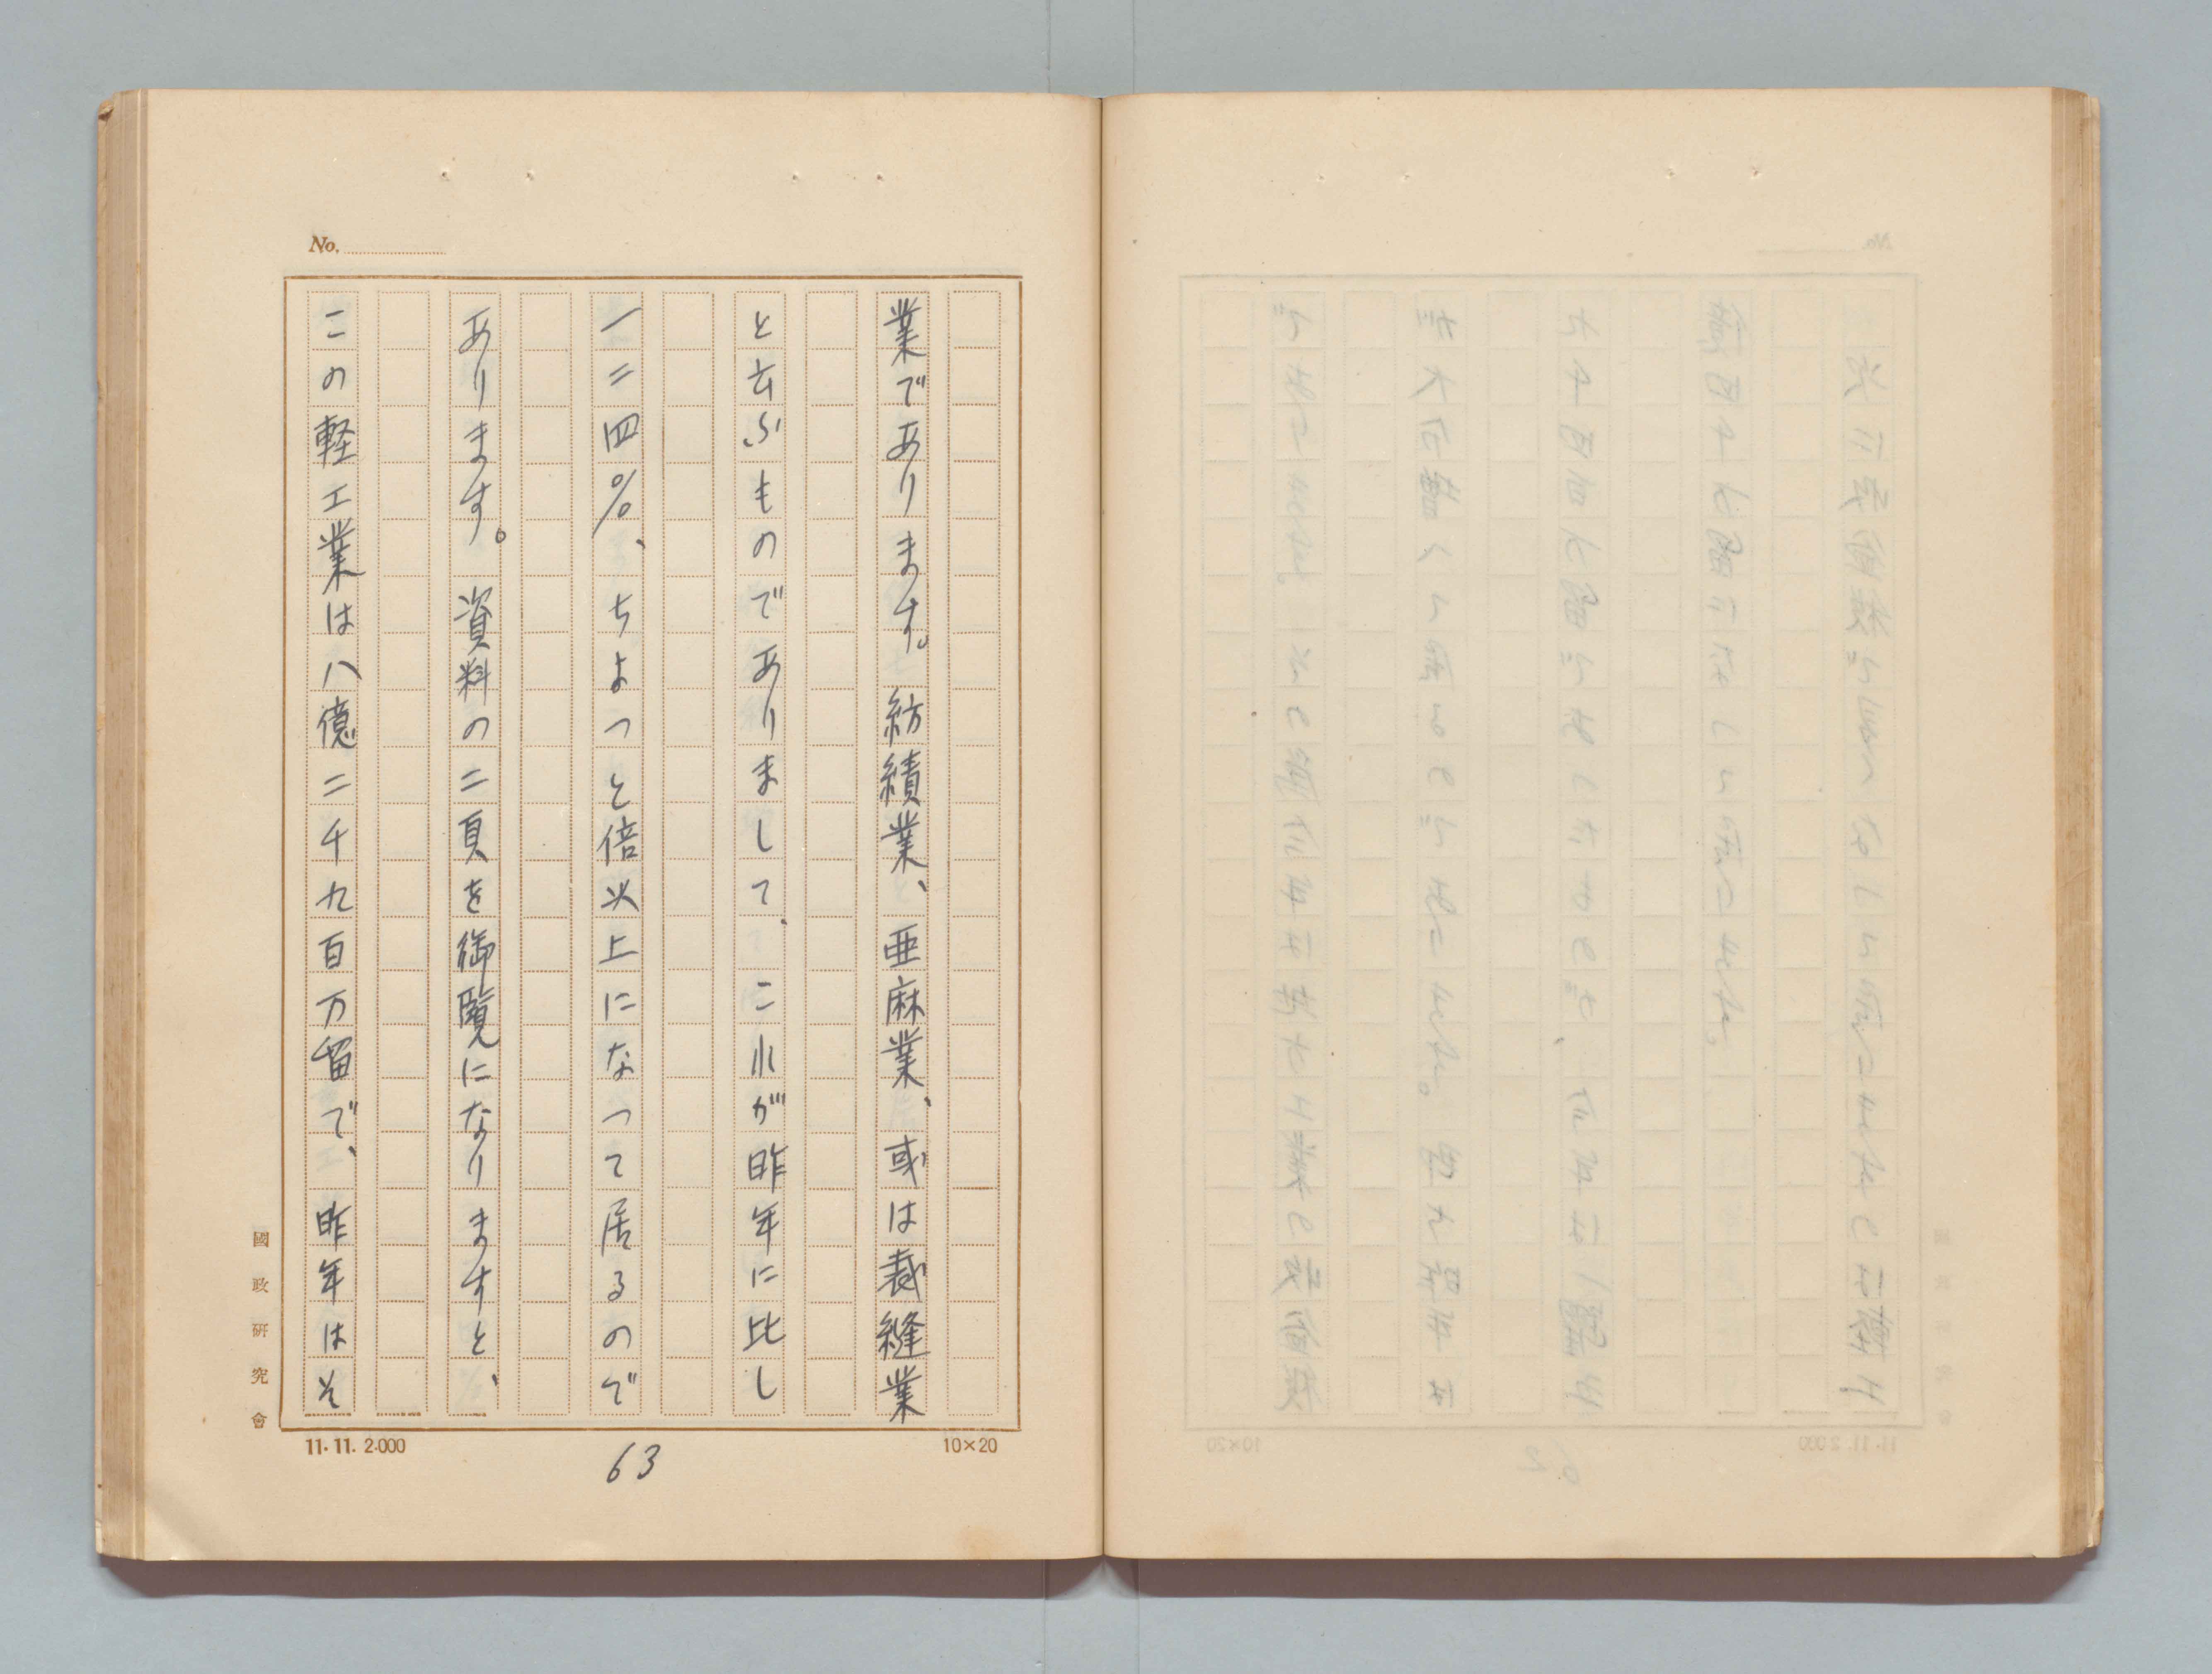 No.
業であります。紡績業、亜麻業、或は裁縫業
と云ふものでありまして、これが昨年に比し
一二四％、ちよつと倍以上になつて居るので
あります。資料の二頁を御覧になりますと、
この軽工業は八億二千九百万留で、昨年はそ
國政研究會
11.11. 2.000
63
10×20